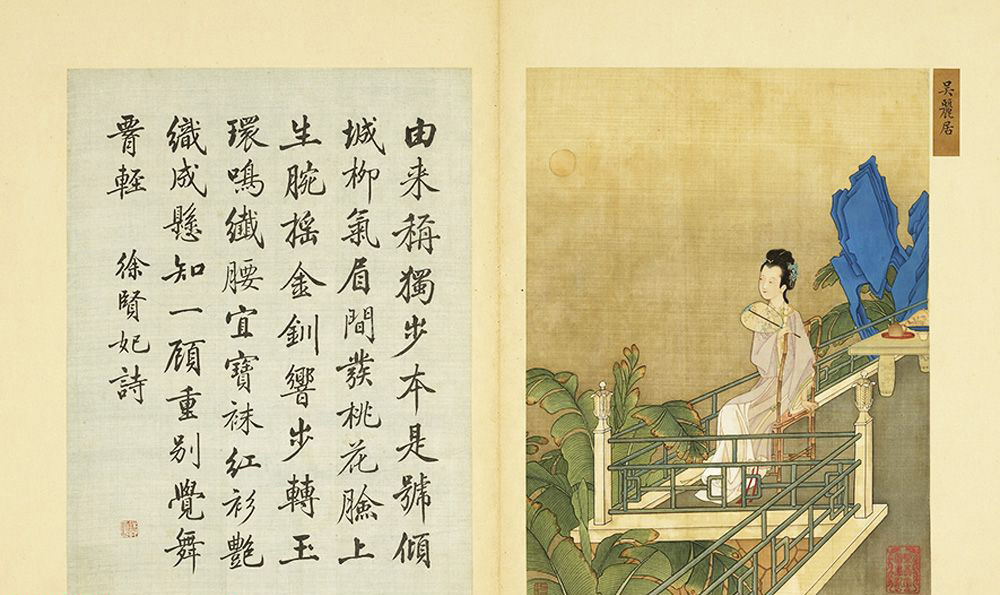 吳麗居
由来稱獨步本是號傾
城柳氣眉間發桃花臉上
生腕搖金釧響步轉玉
環鳴纖腰宜寶袜紅衫艷
織成懸知一顧重別覺舞
輕
徐賢妃詩